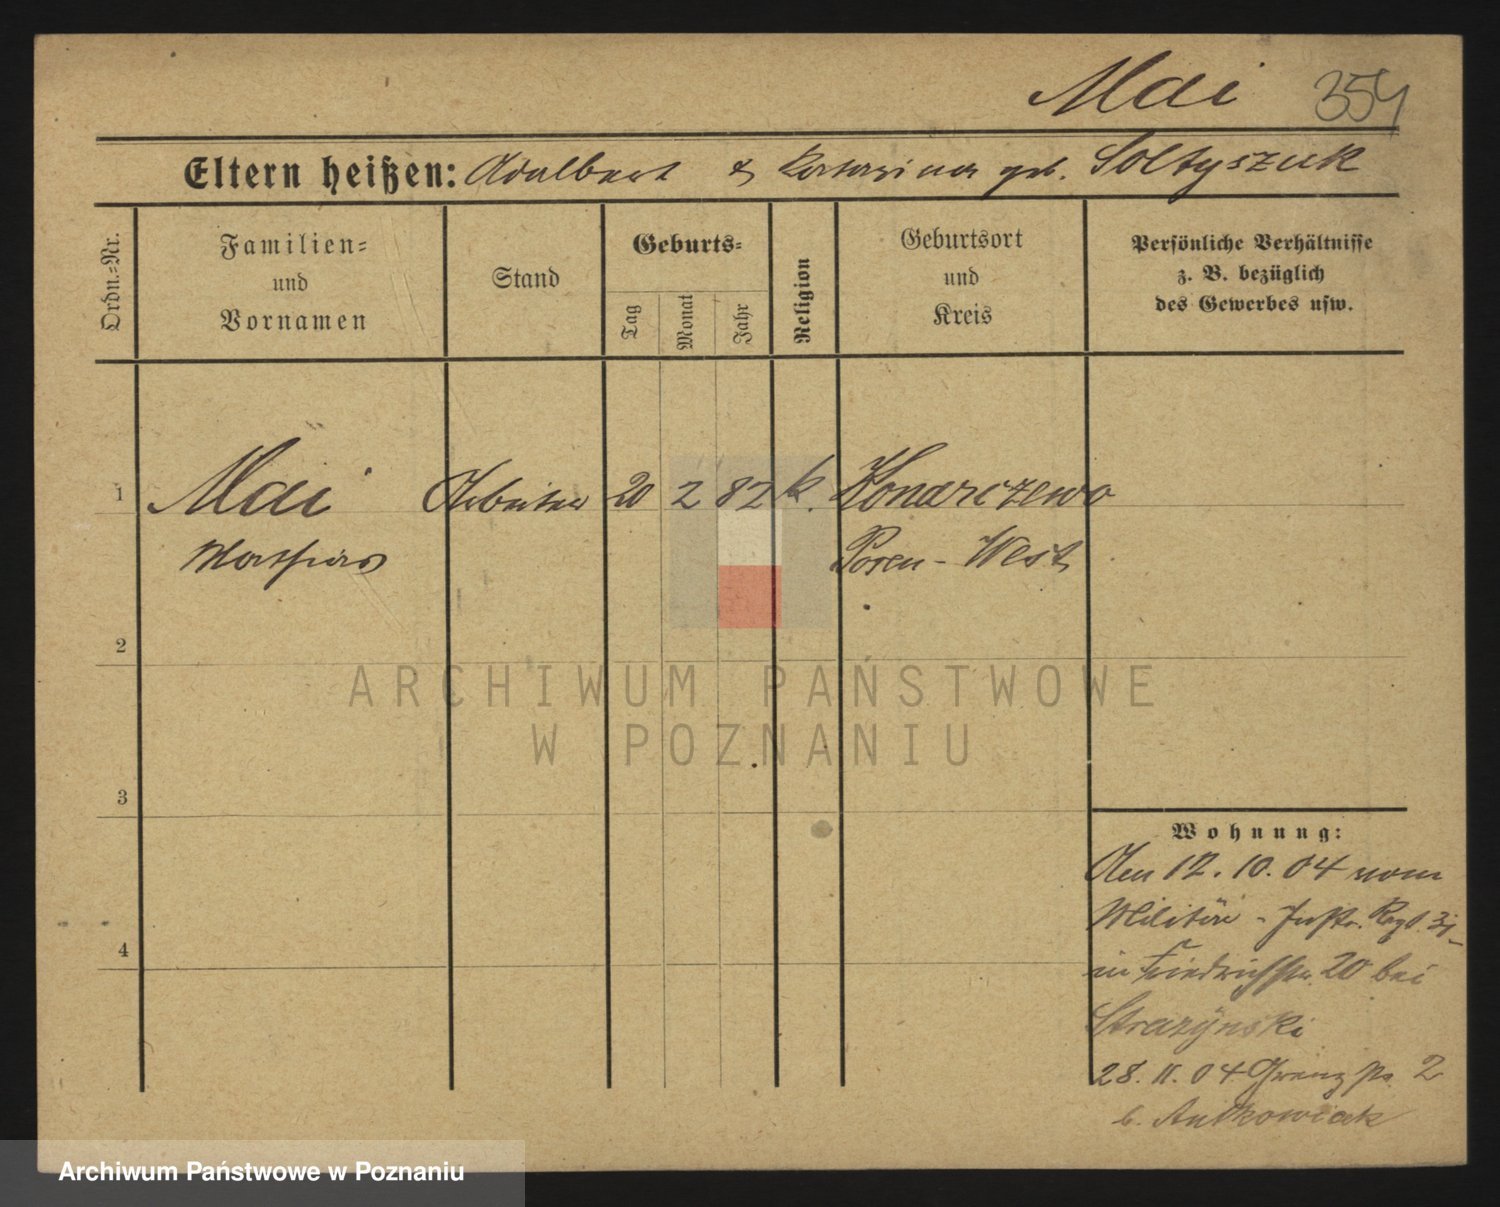 Mai 354
Eltern heißen: Adalbert & Katarina geb. Soltyszuk
Ordn.=Nr.
Familien=
und
Vornamen
Stand
Geburts=
Tag
Monat
Jahr
Religion
Geburtsort
und
Kreis
Persönliche Verhältnisse
z. B. bezüglich
des Gewerbes usw.
1 Mai Arbeiter 20 2 82 k. Konarczewo
Mathias Posen - West
2
3
4
Wohnung:
Den 12. 10. 04 vom
Militär - Inftr. Regt.
in Friedrichstr. 20 bei
Strazÿnski
28. 11. 04 Grenzstr. 2
b. Antkowiak
ARCHIWUM PAŃSTWOWE
W POZNANIU
Archiwum Państwowe w Poznaniu